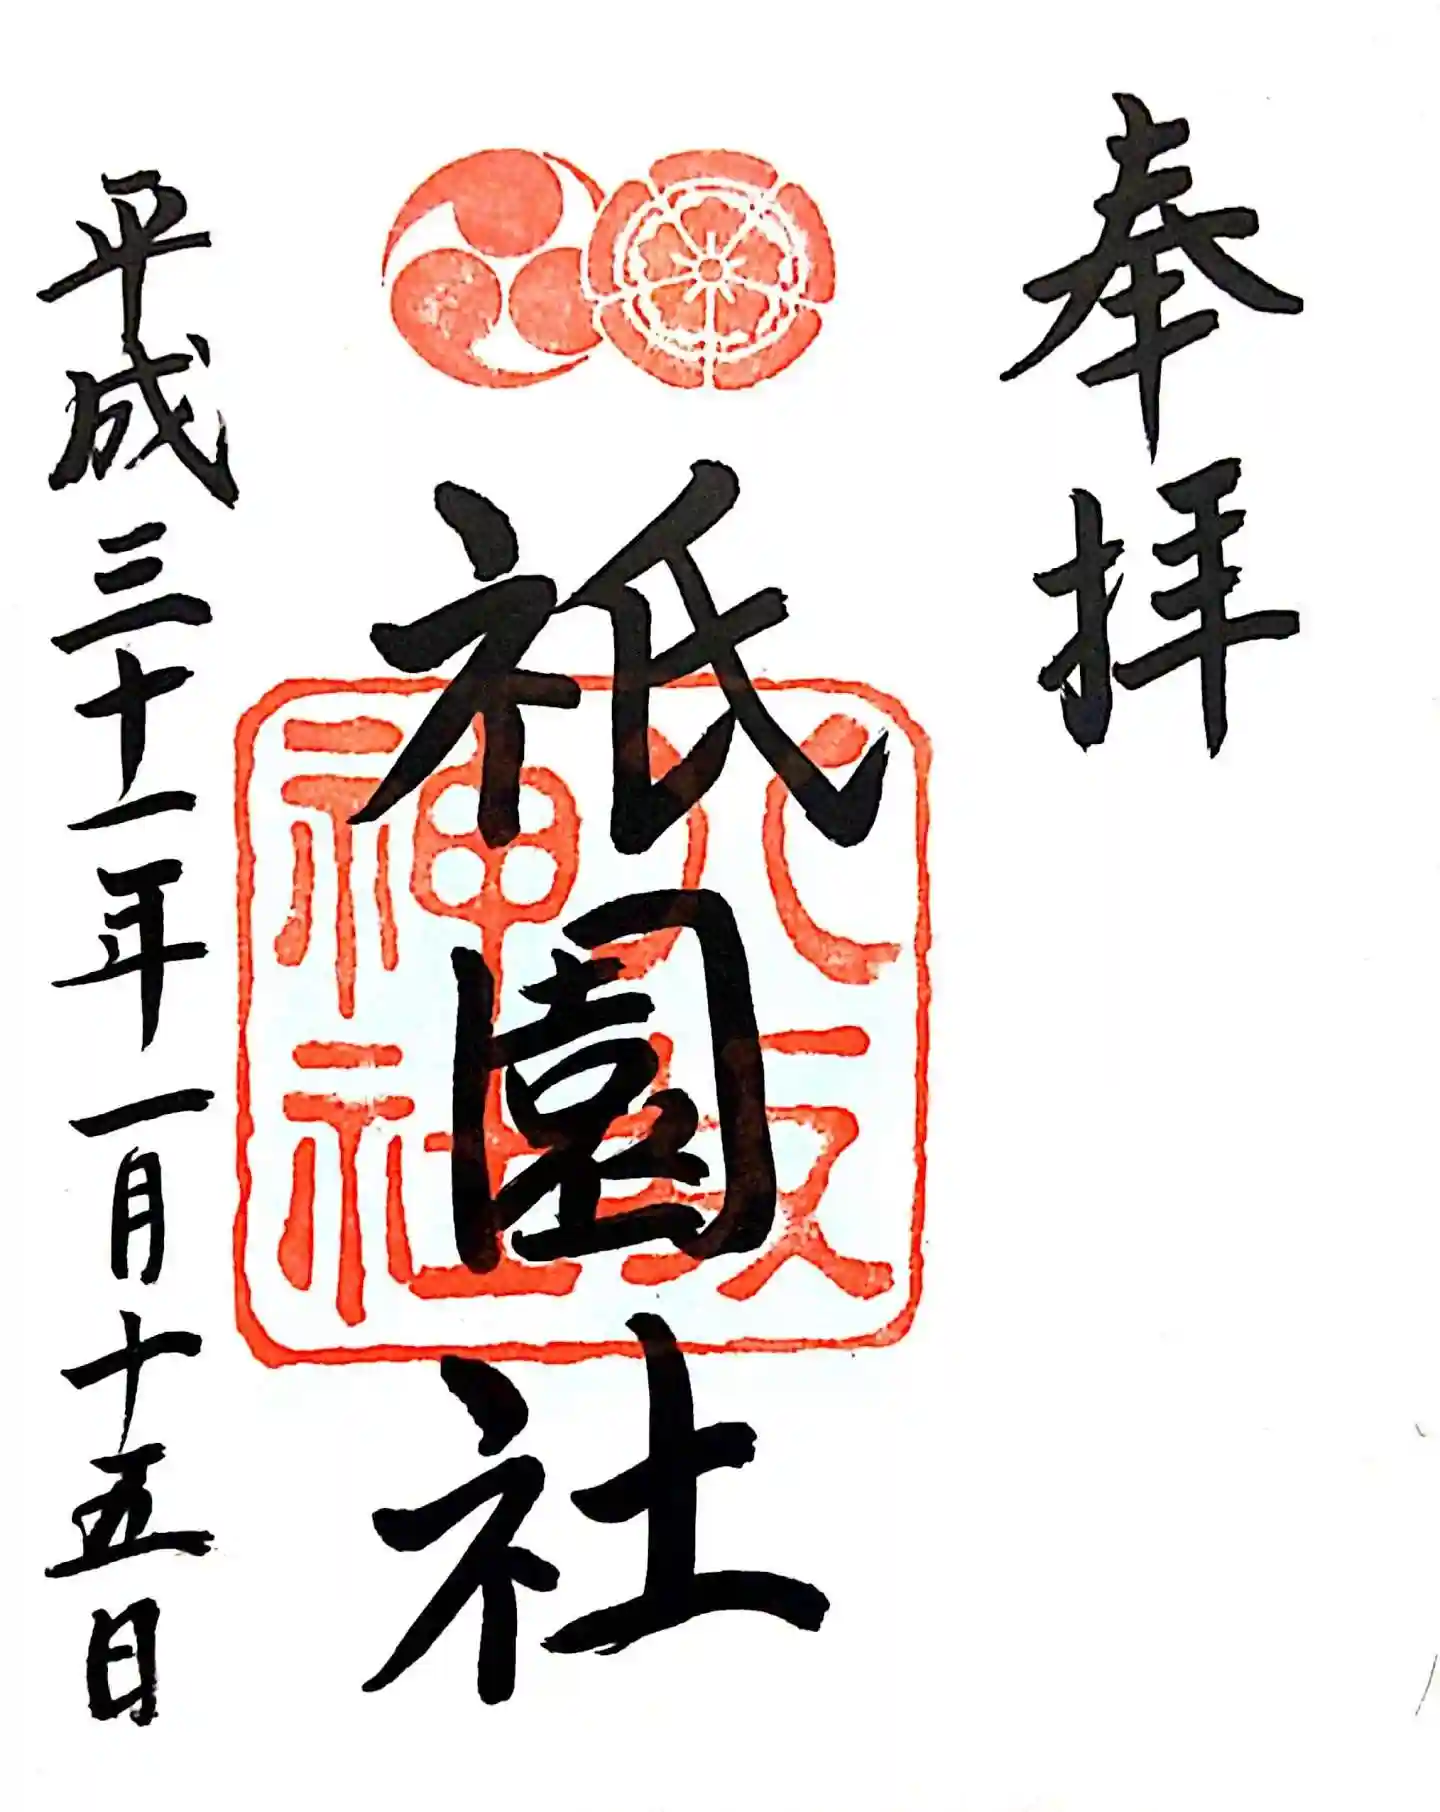 奉拝
祇園社
八坂神社
平成三十一年一月十五日